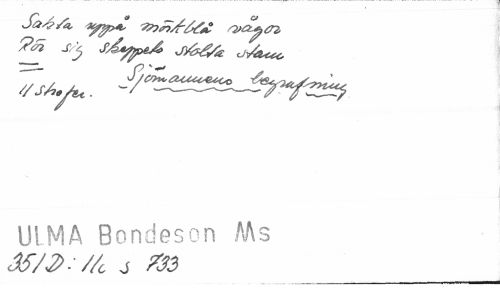 Sakta uppå mörkblå vågor
Rör sig skeppets stolta stam
Sjömannens begrafning
11 strofer.
ULMA Bondeson Ms
351D: 11c s 733